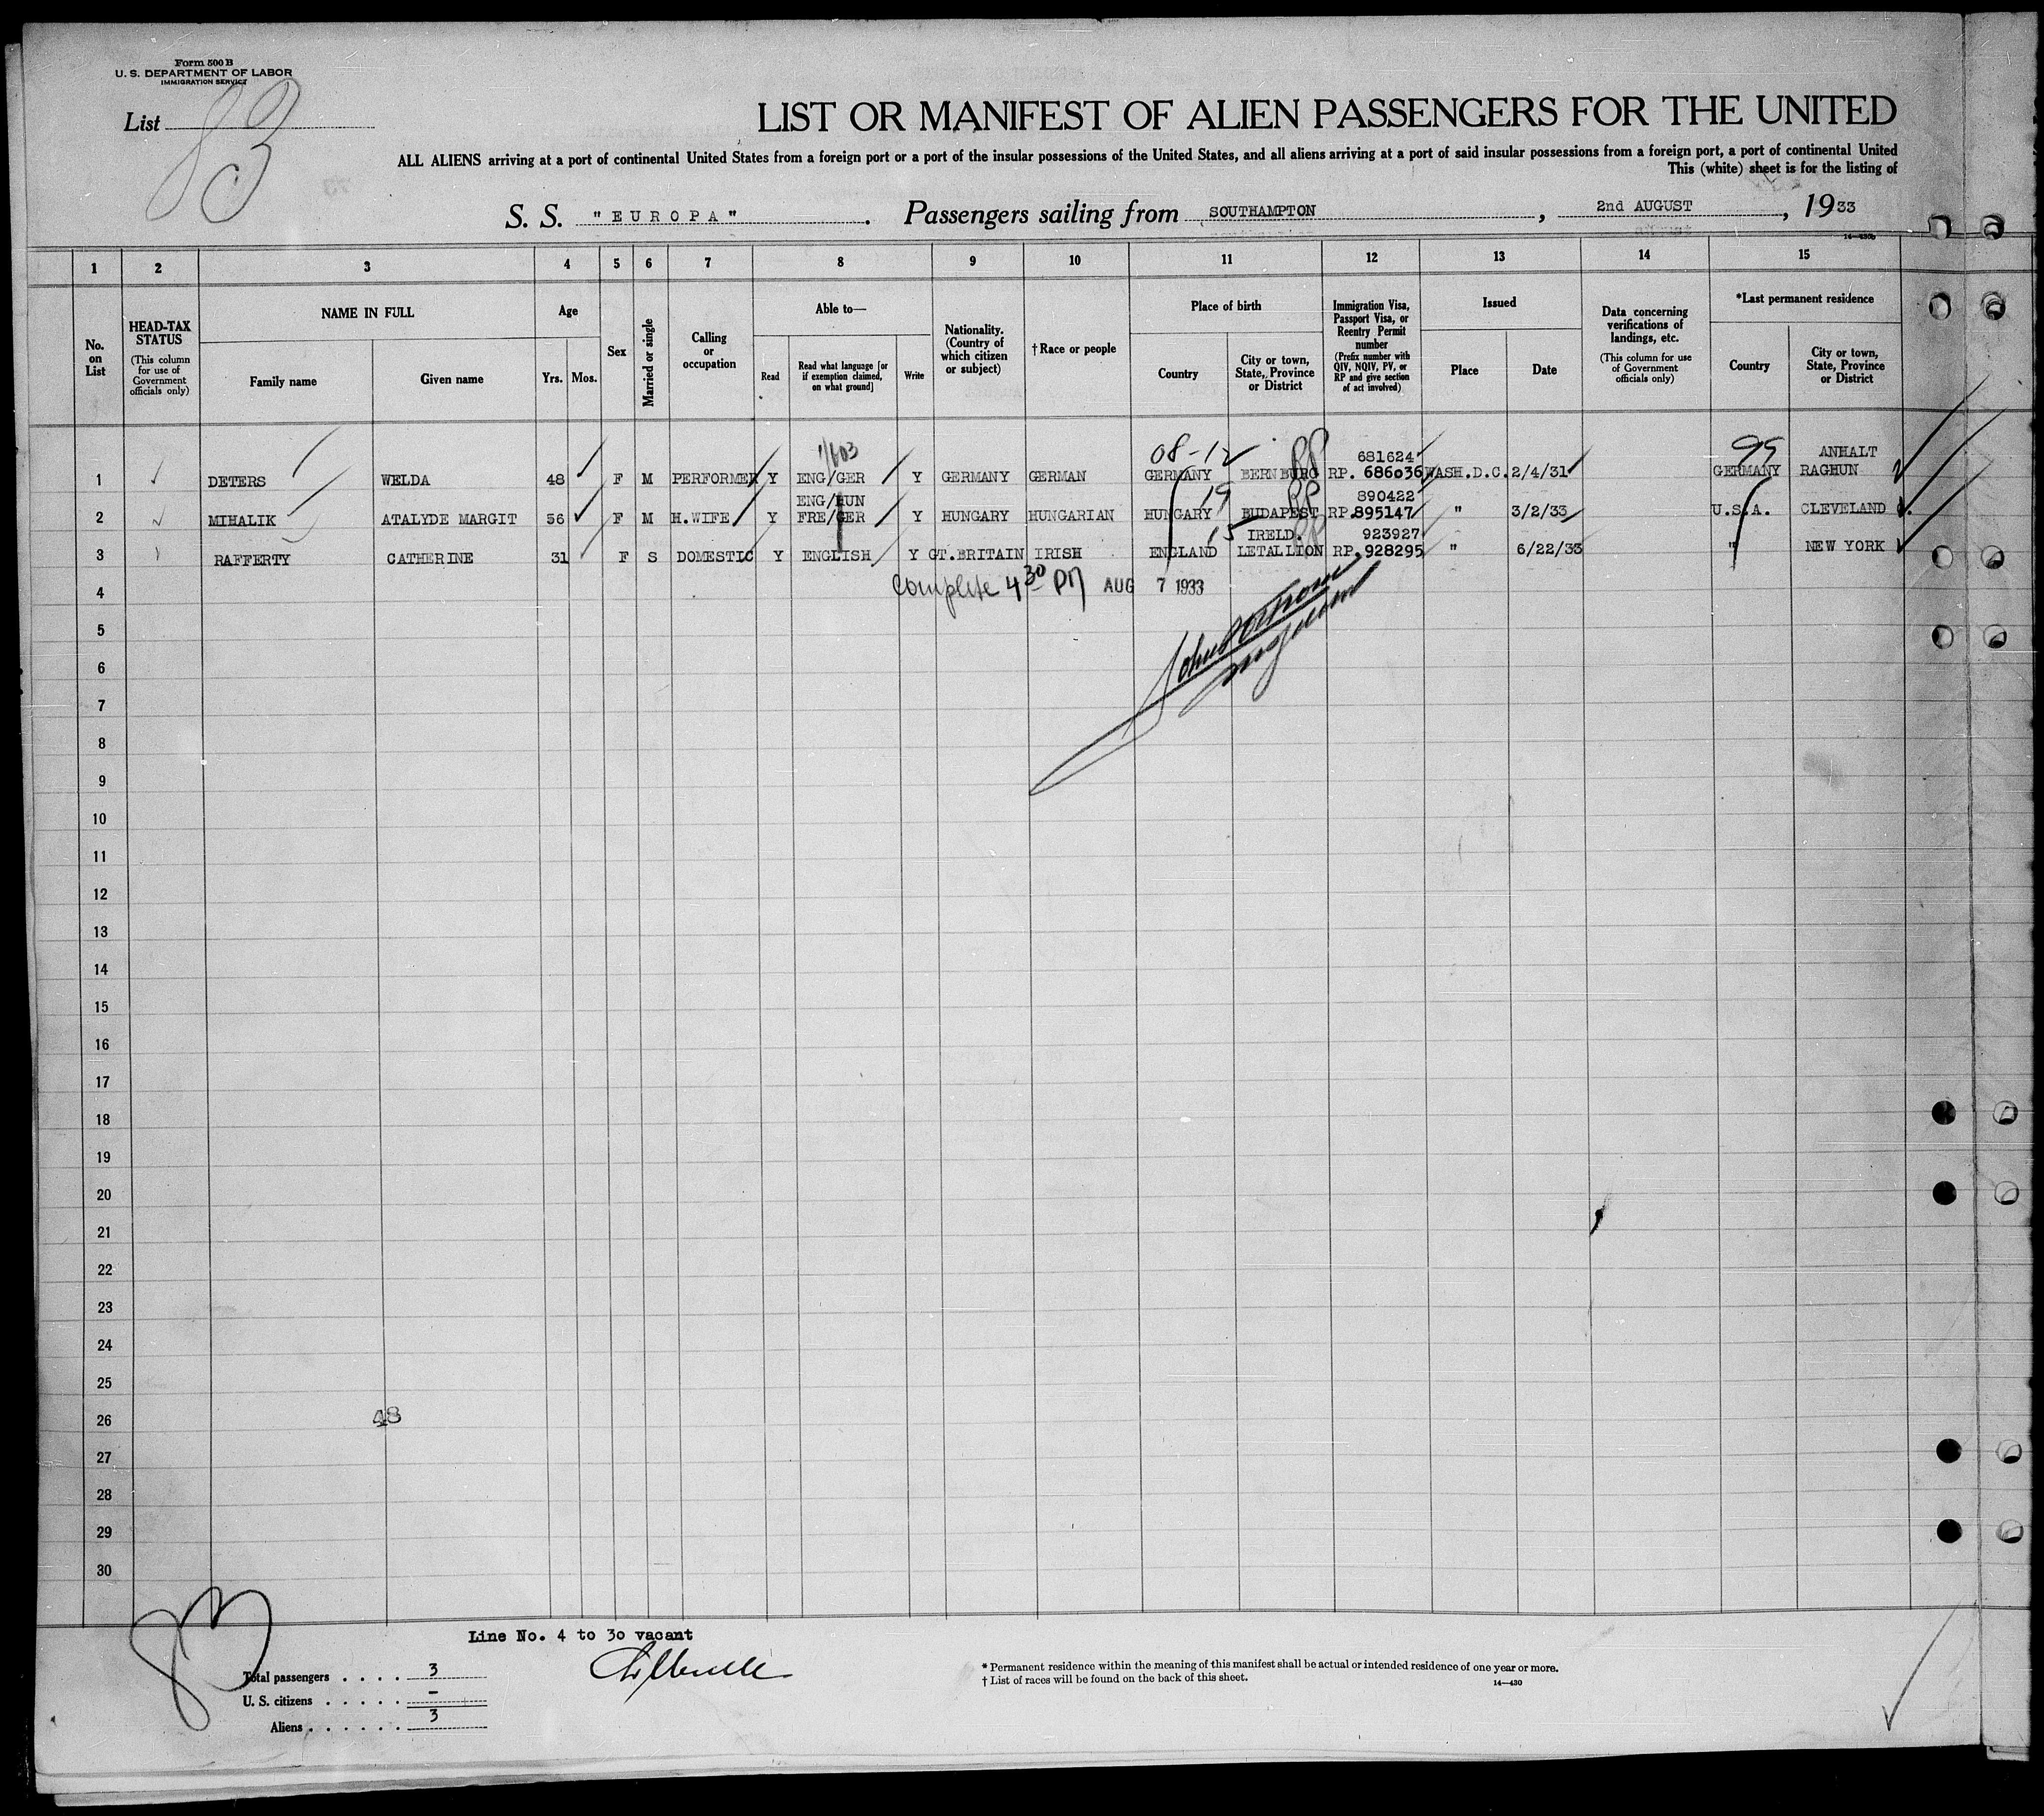 Form 500 B
U. S. DEPARTMENT OF LABOR
IMMIGRATION SERVICE
List 83
LIST OR MANIFEST OF ALIEN PASSENGERS FOR THE UNITED
ALL ALIENS arriving at a port of continental United States from a foreign port or a port of the insular possessions of the United States, and all aliens arriving at a port of said insular possessions from a foreign port, a port of continental United
This (white) sheet is for the listing of
S. S. "EUROPA". Passengers sailing from SOUTHAMPTON, 2nd AUGUST, 1933
14—430b
1 2 3 4 5 6 7 8 9 10 11 12 13 14 15
No. on List
HEAD-TAX STATUS (This column for use of Government officials only)
NAME IN FULL
Family name
Given name
Age
Yrs. Mos.
Sex
Married or single
Calling or occupation
Able to—
Read
Read what language [or if exemption claimed, on what ground]
Write
Nationality. (Country of which citizen or subject)
†Race or people
Place of birth
Country
City or town, State, Province or District
Immigration Visa, Passport Visa, or Reentry Permit number (Prefix number with QIV, NQIV, PV, or RP and give section of act involved)
Issued
Place
Date
Data concerning verifications of landings, etc. (This column for use of Government officials only)
*Last permanent residence
Country
City or town, State, Province or District
08-12 681624 99 ANHALT
1 DETERS WELDA 48 F M PERFORMER Y ENG/GER Y GERMANY GERMAN GERMANY BERNBURG RP. 686036 WASH.D.C. 2/4/31 GERMANY RAGHUN
ENG/HUN 19 890422
2 MIHALIK ATALYDE MARGIT 56 F M H.WIFE Y FRE/GER Y HUNGARY HUNGARIAN HUNGARY BUDAPEST RP.895147 " 3/2/33 U.S.A. CLEVELAND
15 IRELD. 923927
3 RAFFERTY CATHERINE 31 F S DOMESTIC Y ENGLISH Y GT.BRITAIN IRISH ENGLAND LETALLION RP.928295 " 6/22/33 " NEW YORK
4 Complete 4 30 PM AUG 7 1933
5
6
7
8
9
10
11
12
13
14
15
16
17
18
19
20
21
22
23
24
25
26 48
27
28
29
30
83
Line No. 4 to 30 vacant
Total passengers . . . . 3
U. S. citizens . . . . . –
Aliens . . . . . . 3
* Permanent residence within the meaning of this manifest shall be actual or intended residence of one year or more.
† List of races will be found on the back of this sheet.
14—430